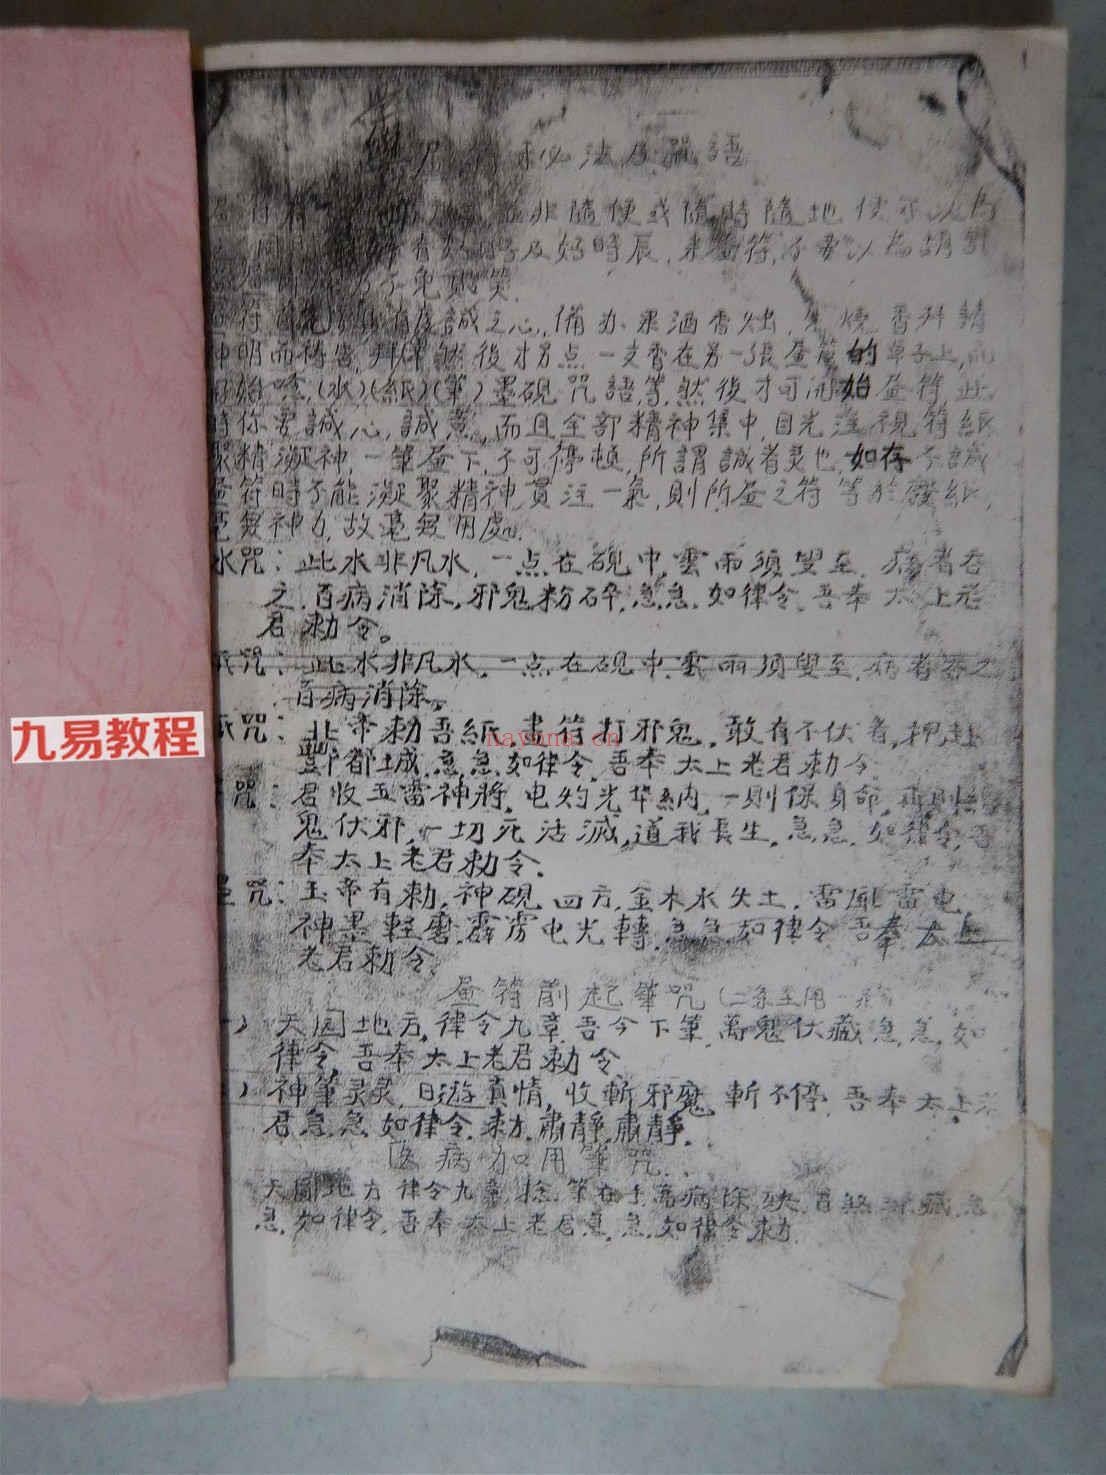 秘法及咒語
非隨便或隨時隨地使可以為
有好時及好時辰,来畫符,不要以為胡亂
免貽笑.
符 有虔誠之心,備办果酒香灶,先燒香拜請
神明而禱告,拜佛然後才另点一支香在另一張畫符的草子上,而
開始唸,(水)(紙)(筆)墨硯咒語等,然後才可開始畫符,此
時你要誠心,誠意,而且全部精神集中,目光注視符紙
聚精凝神,一筆畫下,不可停頓,所謂誠者灵也,如存不誠
畫符時不能凝聚精神貫注一氣,則所畫之符等於廢紙,
毫無神力,故毫無用處.
水咒:此水非凡水,一点在硯中,雲雨須臾至,病者吞
之,百病消除,邪鬼粉碎,急急,如律令,吾奉太上老
君勅令。
紙咒:此水非凡水,一点在硯中,雲雨須臾至,病者吞之
百病消除。
紙咒:北帝勅吾紙,書符打邪鬼,敢有不伏者,押赴
酆都城,急急,如律令,吾奉太上老君勅令
咒:君收五雷神將,电灼光华納,一則保身命,再則縛
鬼伏邪,一切死活滅,道我長生,急急,如律令,吾
奉太上老君勅令.
墨咒:玉帝有勅,神硯四方,金木水火土,雷風雷电
神墨軽磨,霹雳电光轉,急急,如律令,吾奉太上
老君勅令.
畫符前起筆咒(二条至用一条
天园地方,律令九章,吾今下筆,萬鬼伏藏,急急,如
律令,吾奉太上老君勅令
)神筆灵灵,日遊真情,收斬邪魔,斬不停,吾奉太上老
君急急,如律令,勅,肅静,肅静.
医病加用筆咒.
天圓地方,律令九章,捻筆在手,萬病除殃,百煞潜藏,急
急,如律令,吾奉太上老君急急,如律令勅.
九易教程
nayona.cn